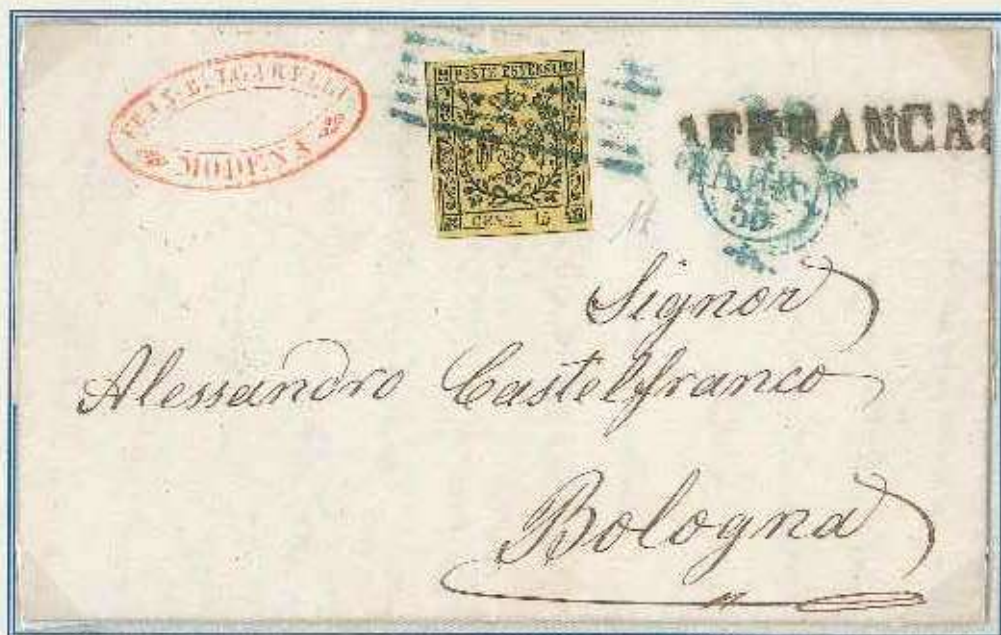 MODENA
POSTE ESTENSI
CENT. 15
AFFRANCAT
55
Signor
Alessandro Castelfranco
Bologna